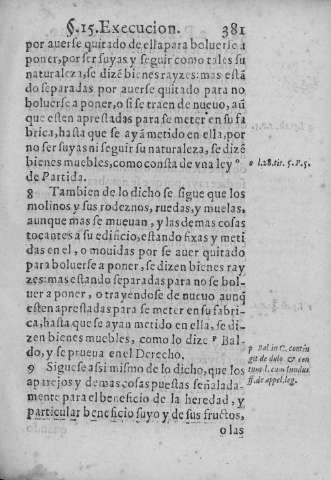 §.15.Execucion. 381
por auerse quitado de ella para boluerse a
poner, por ser suyas y seguir como tales su
naturaleza, se dizẽ bienes rayzes: mas estã
do separadas por auerse quitado para no
boluerse a poner, o si se traen de nueuo, aũ
que esten aprestadas para se meter en su fa
brica, hasta que se ayã metido en ella, por
no ser suyas ni seguir su naturaleza, se dizẽ
bienes muebles, como consta de vna ley º
de Partida.
o l.28.tit. 5. P.5.
8 Tambien de lo dicho se sigue que los
molinos y sus rodeznos, ruedas, y muelas,
aunque mas se mueuan, y las demas cosas
tocantes a su edificio, estando fixas y meti
das en el, o mouidas por se auer quitado
para boluerse a poner, se dizen bienes ray
zes: mas estando separadas para no se bol-
uer a poner, o trayẽdose de nueuo aunq̃
esten aprestadas para se meter en su fabri-
ca, hasta que se ayan metido en ella, se di-
zen bienes muebles, como lo dize ᵖ Bal-
do, y se prueua en el Derecho.
p Bal in C. contin
git de dolo & con
tum l. cum fundus
ff. de appel. leg.
9 Siguese assi mismo de lo dicho, que los
aparejos y demas cosas puestas señalada-
mente para el beneficio de la heredad, y
particular beneficio suyo y de sus fructos,
o las